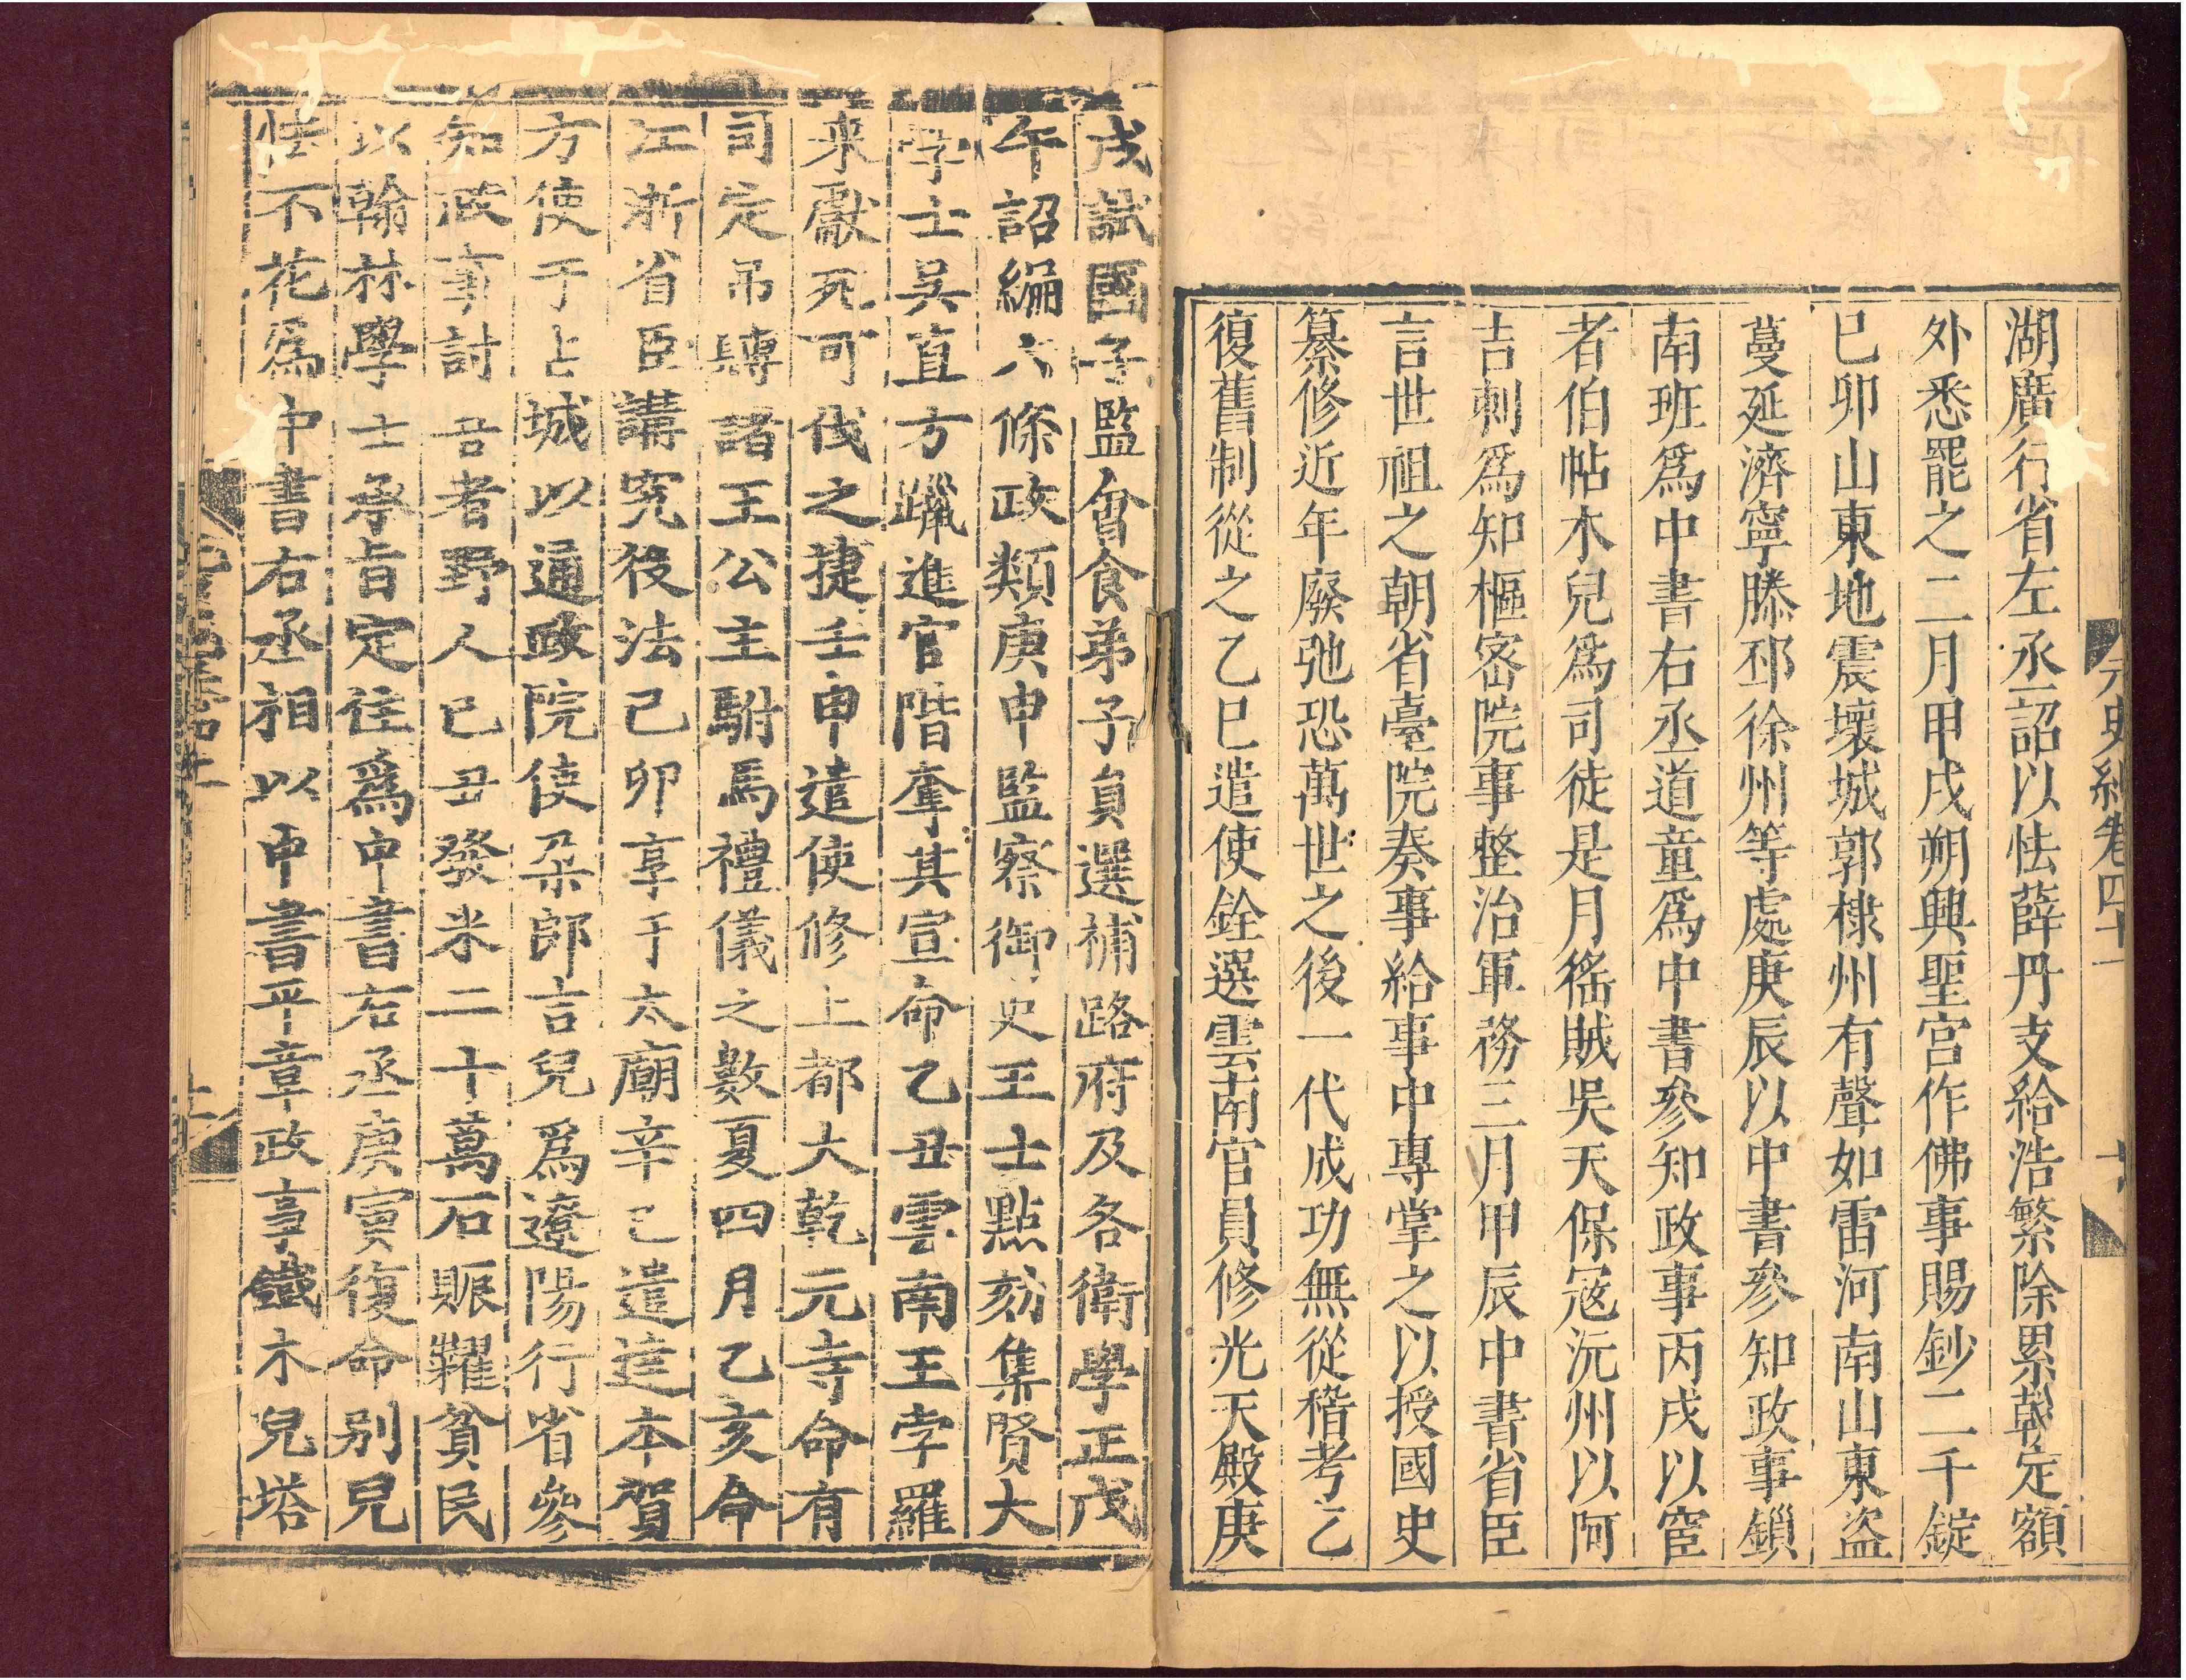 元史紀卷四十一
湖廣行省左丞詔以怯薛丹支給浩繁除累朝定額
外悉罷之二月甲戌朔興聖宮作佛事賜鈔二千錠
已卯山東地震壞城郭棣州有聲如雷河南山東盜
蔓延濟寧滕邳徐州等處庚辰以中書參知政事鎖
南班爲中書右丞道童爲中書參知政事丙戌以宦
者伯帖木兒爲司徒是月徭賊吳天保寇沅州以阿
吉剌爲知樞密院事整治軍務三月甲辰中書省臣
言世祖之朝省臺院奏事給事中專掌之以授國史
纂修近年廢弛恐萬世之後一代成功無從稽考乙
復舊制從之乙巳遣使銓選雲南官員修光天殿庚
戌試國子監會食弟子員選補路府及各衛學正戊
午詔編六條政類庚申監察御史王士點劾集賢大
學士吳直方躐進官階奪其宣命乙丑雲南王孛羅
來獻死可伐之捷壬申遣使修上都大乾元寺命有
司定吊賻諸王公主駙馬禮儀之數夏四月乙亥命
江浙省臣講究役法己卯享于太廟辛巳遣逹本賀
方使于占城以通政院使朶郎吉兒爲遼陽行省參
知政事討吾者野人已丑發米二十萬石賑糶貧民
以翰林學士承旨定住爲中書右丞庚寅復命別兒
怯不花爲中書右丞相以中書平章政事鐵木兒塔